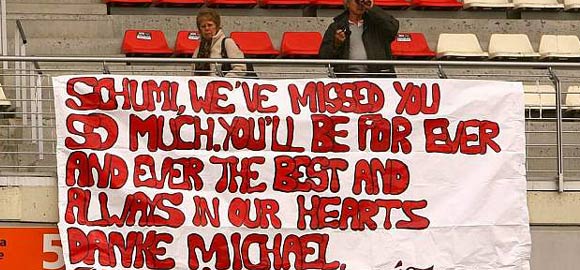 SCHUMI, WE'VE MISSED YOU
SO MUCH. YOU'LL BE FOR EVER
AND EVER THE BEST AND
ALWAIS IN OUR HEARTS
DANKE MICHAEL,
5